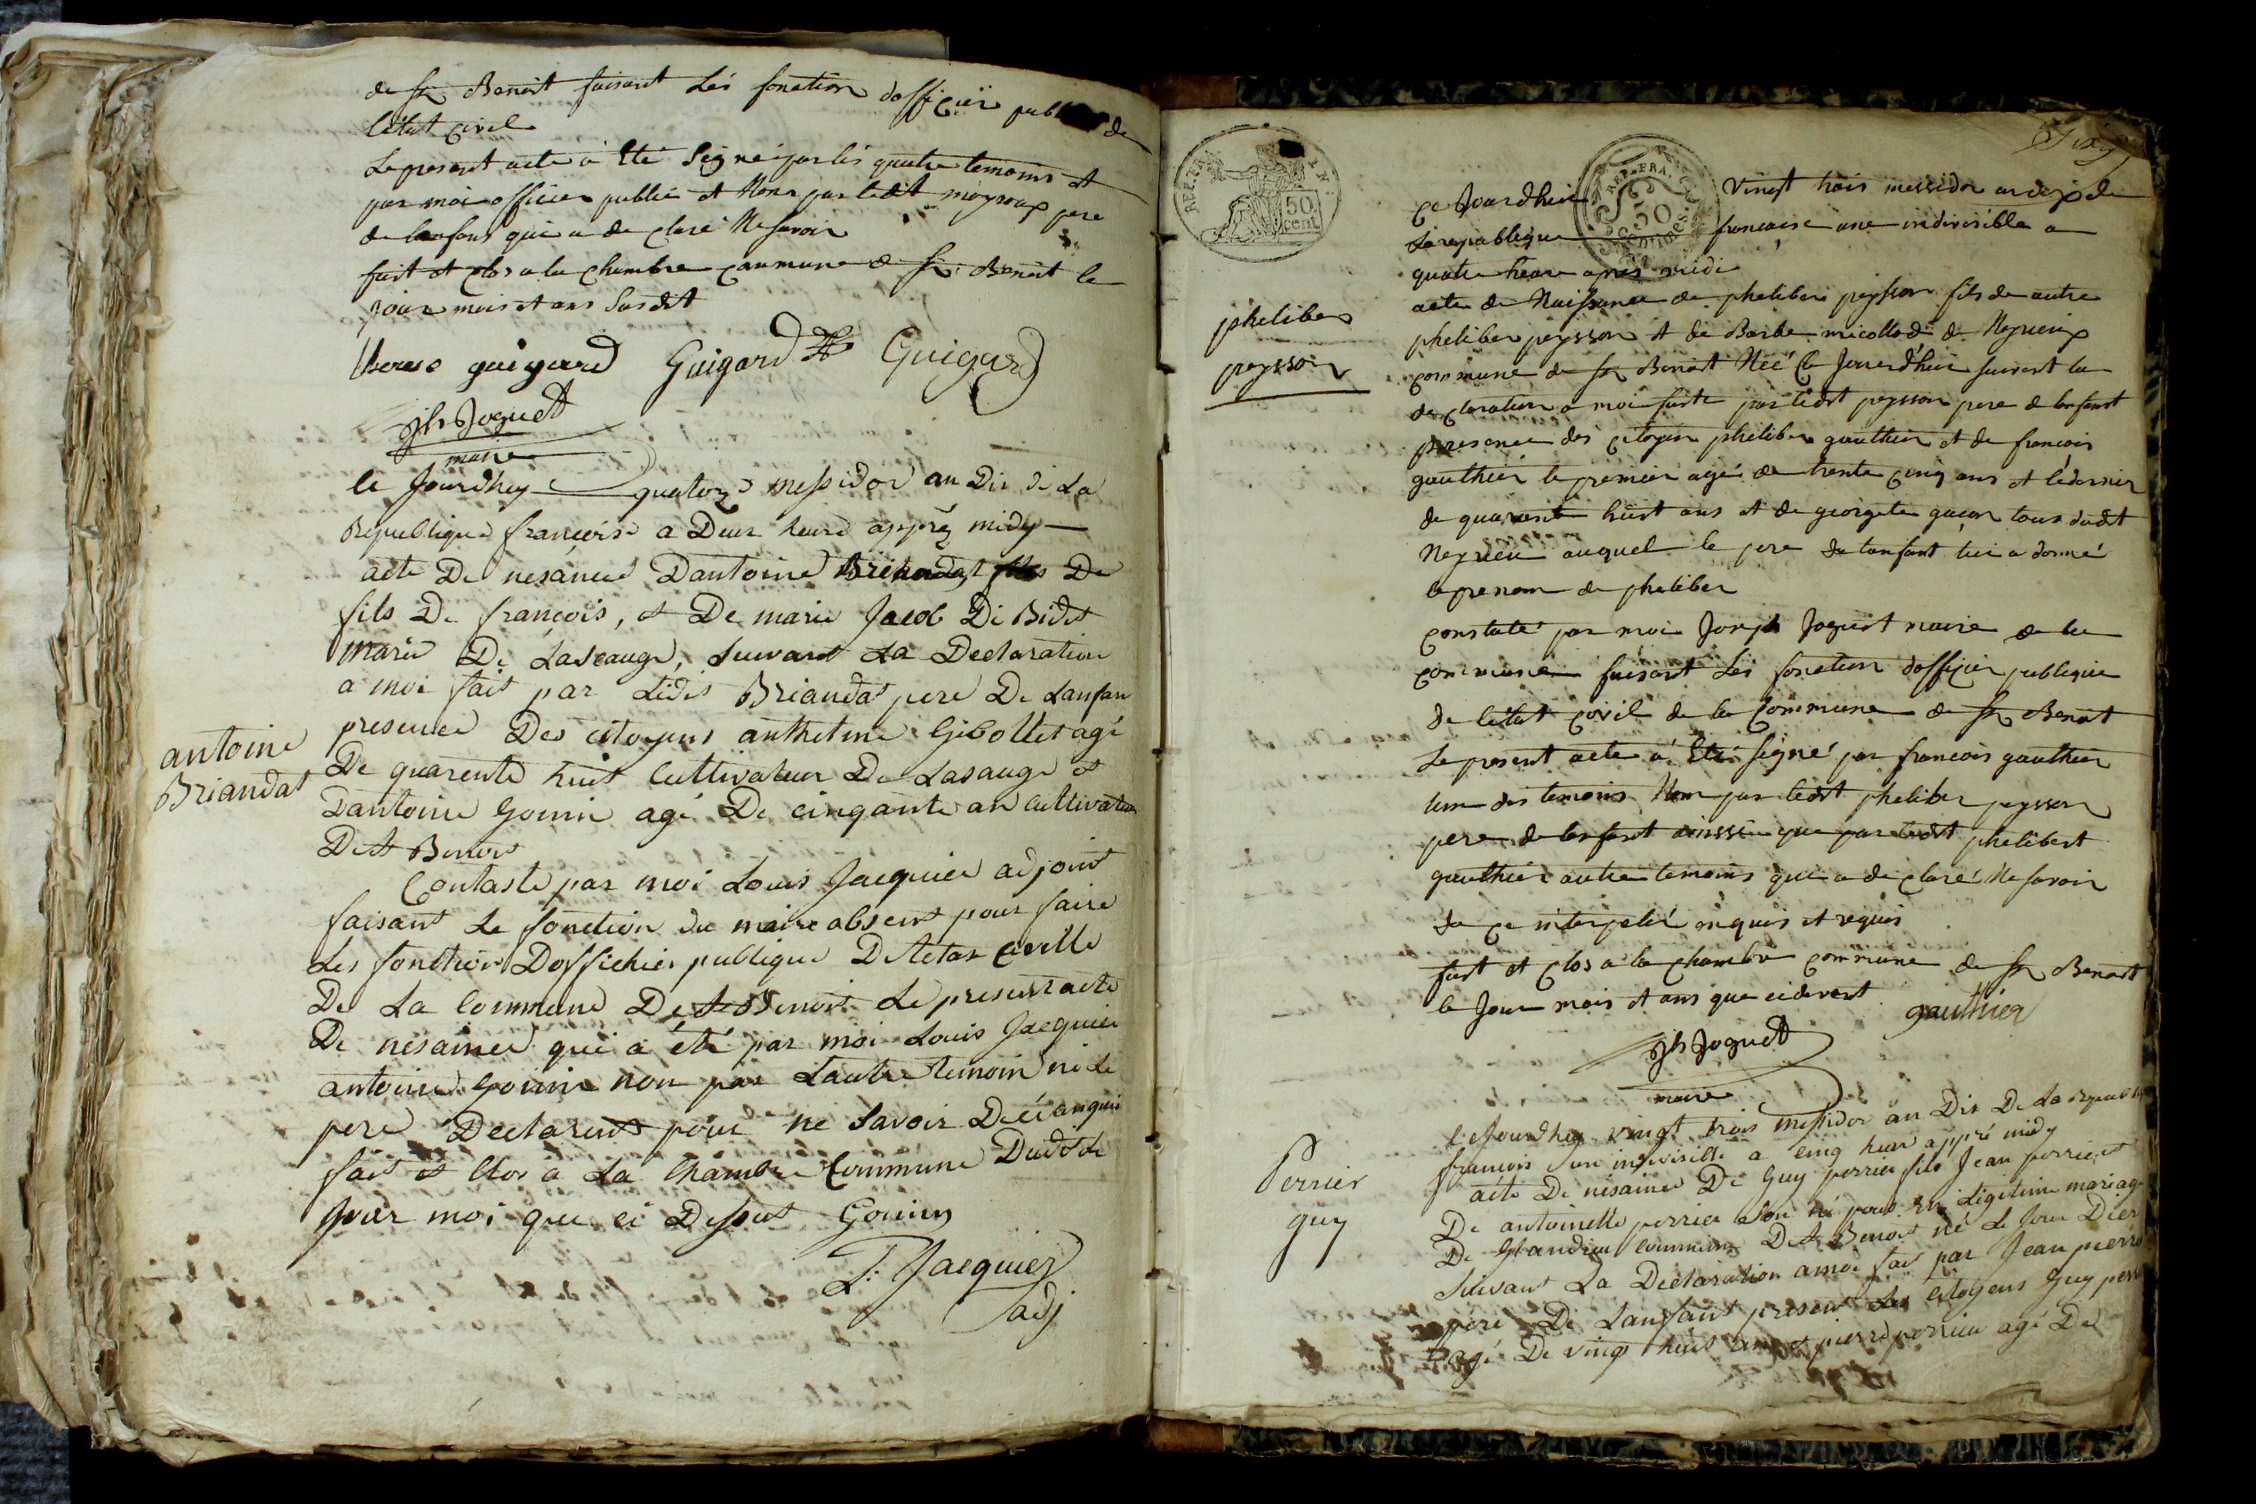 de St Benoit faisant les fonction dofficier public de
letat civil
Le present acte a eté signé par les quatre temoins et
par moi officier public et Non par ledit moyroux pere
de lanfans qui a de claré Ne savoir
fait et clos a la chambre commune de St Benoit le
jour mois et ans susdit
guigard Guigard Guigard
Jh Joguet
maire
le Jourdhuy quatorze messidor an Dix de La
Republique francoise a Deux heure apprés midy
acte De nesance Dantoine Briandat De
fils De francois, et De marie Jacob De
marie De Lasauge, suivant La Declaration
a moi fait par Ledit Briandat pere De Lanfan
presence Des citoyens anthelme Gibollet agé
antoine
Briandat
De quarente huit Cultivateur De Lasauge et
Dantoine Gouin agé De cinqante an cultivateur
De St Benoit
Contasté par moi Louis Jacquier adjoint
faisant Le fonction du maire absent pour faire
Les fonction Doffichier publique De letat civille
De La Commune De St Benoit Le present acte
De nesance qui a été par moi Louis Jacquier
antoine Gouin non par Lautre temoin ni Le
pere Declarent pour ne Savoir De ce anquis
fait et Clos a La Chambre Commune Dudit Le
Jour moi que ci Dessus Gouin
L. Jacquier
adj
REP. FRA.
50 cent
REP. FRA.
50 centimes
ce Jourdhui vingt trois messidor an dix de
La republique francaise une indivisible a
quatre heure apres midi
acte de Naissance de pheliber peysson fils de autre
pheliber
peysson
pheliber peysson et de Barbe micollod de Neyrieux
commune de St Benoit Née Ce Jourdhui suivant la
de claration a moi faite par ledit peysson pere de lanfant
presence des citoyen pheliber gauthier et de francois
gauthier le premier agé de trente cinq ans et ledernier
de quarante huit ans et de georgete gacon tous dudit
Neyrieu auquel le pere de lanfant lui a donné
le prenom de pheliber
constaté par moi Joseph Joguet maire de la
commune faisant les fonction dofficier publique
de letat civil de la Commune de St Benoit
Le present acte a Eté signé par francois gauthier
lun des temoins Non par ledit pheliber peysson
pere de lanfant ainssi que par ledit phelibert
gauthier autre temoins qui a de claré Ne savoir
de ce interpelé enquis et requis
fait et clos a la chambre commune de St Benoit
le Jour mois et ans que cidevant
gauthier
Jh Joguet
maire
le Jourdhuy vingt trois messidor an Dix De La
francois un indivisible a cinq heur appré midy
Perrier
guy
acte De nesance De Guy perrier fils Jean perrier et
De antoinette perrier son né pour en Ligitime mariage
De Glandieu Commune De St Benoit né Le Jour Dier
suivant La Declaration a moi fait par Jean pierre
pere De Lanfant present Les citoyens Guy
agé De vingt huit ans et pierre perrier agé De